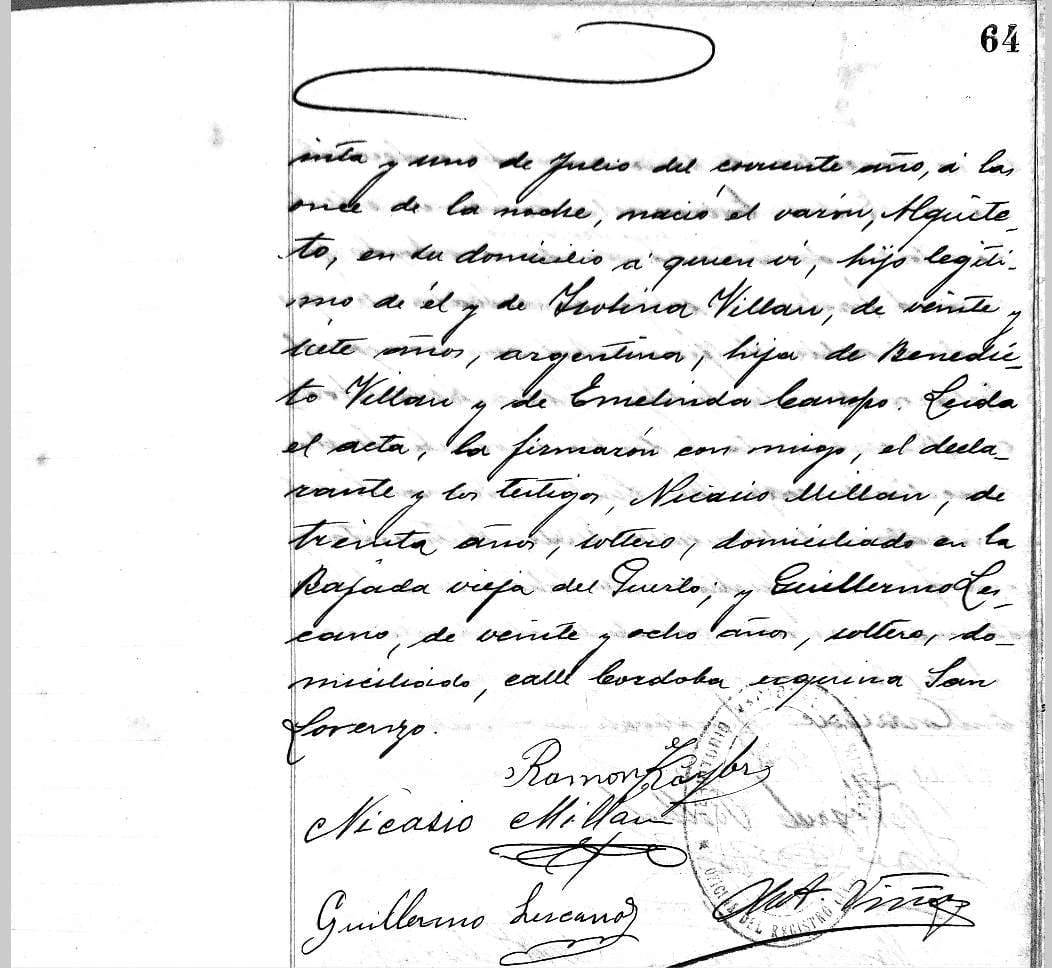 64
inta y uno de Julio del corriente año, á las
once de la noche, nació el varón,
to, en su domicilio á quien ví, hijo legíti-
mo de él y de Isolina Villan, de veinte y
siete años, argentina, hija de Benedic-
to Villan y de Emelinda Campo. Leida
el acta, la firmarón con migo, el decla-
rante y los testigos, Nicasio Millan, de
treinta años, soltero, domiciliado en la
Bajada vieja del Puerto; y Guillermo Les-
cano, de veinte y ocho años, soltero, do-
miciliado, calle Cordoba esquina San
Lorenzo.
Ramon
Nicasio Millan
Guillermo Lescano
OFICINA DEL REGISTRO